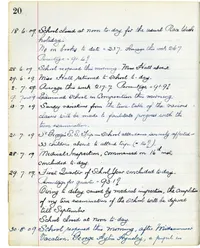 20
18-6-09 School closed at noon to day for the usual Race Week
holiday.
No on books to date - 237. Average this week 217
Percentage - 91.
28-6-09 School reopened this morning. Miss Hall absent
29-6-09 Miss Hall returned to School to-day.
2-7-09 Average this week 217.7 Percentage - 91.9%
9-7-09 Examined School in Composition this morning.
12-7-09 Sundry variations from the time table of the various
classes will be made to facilitate progress with the
term examination.
21-7-09 School attendance seriously affected -
33 children absent
28-7-09 Medical Inspection, commenced on 16th inst
concluded to-day.
29-7-09 First Quarter of School Year concluded to-day.
Percentage for quarter - 93.1%
Owing to delay caused by medical inspection, the completion
of my term examination of the School will be deferred
till September.
School closed at noon to day.
30-8-09 School reopened this morning, after Midsummer
Vacation. George a pupil in